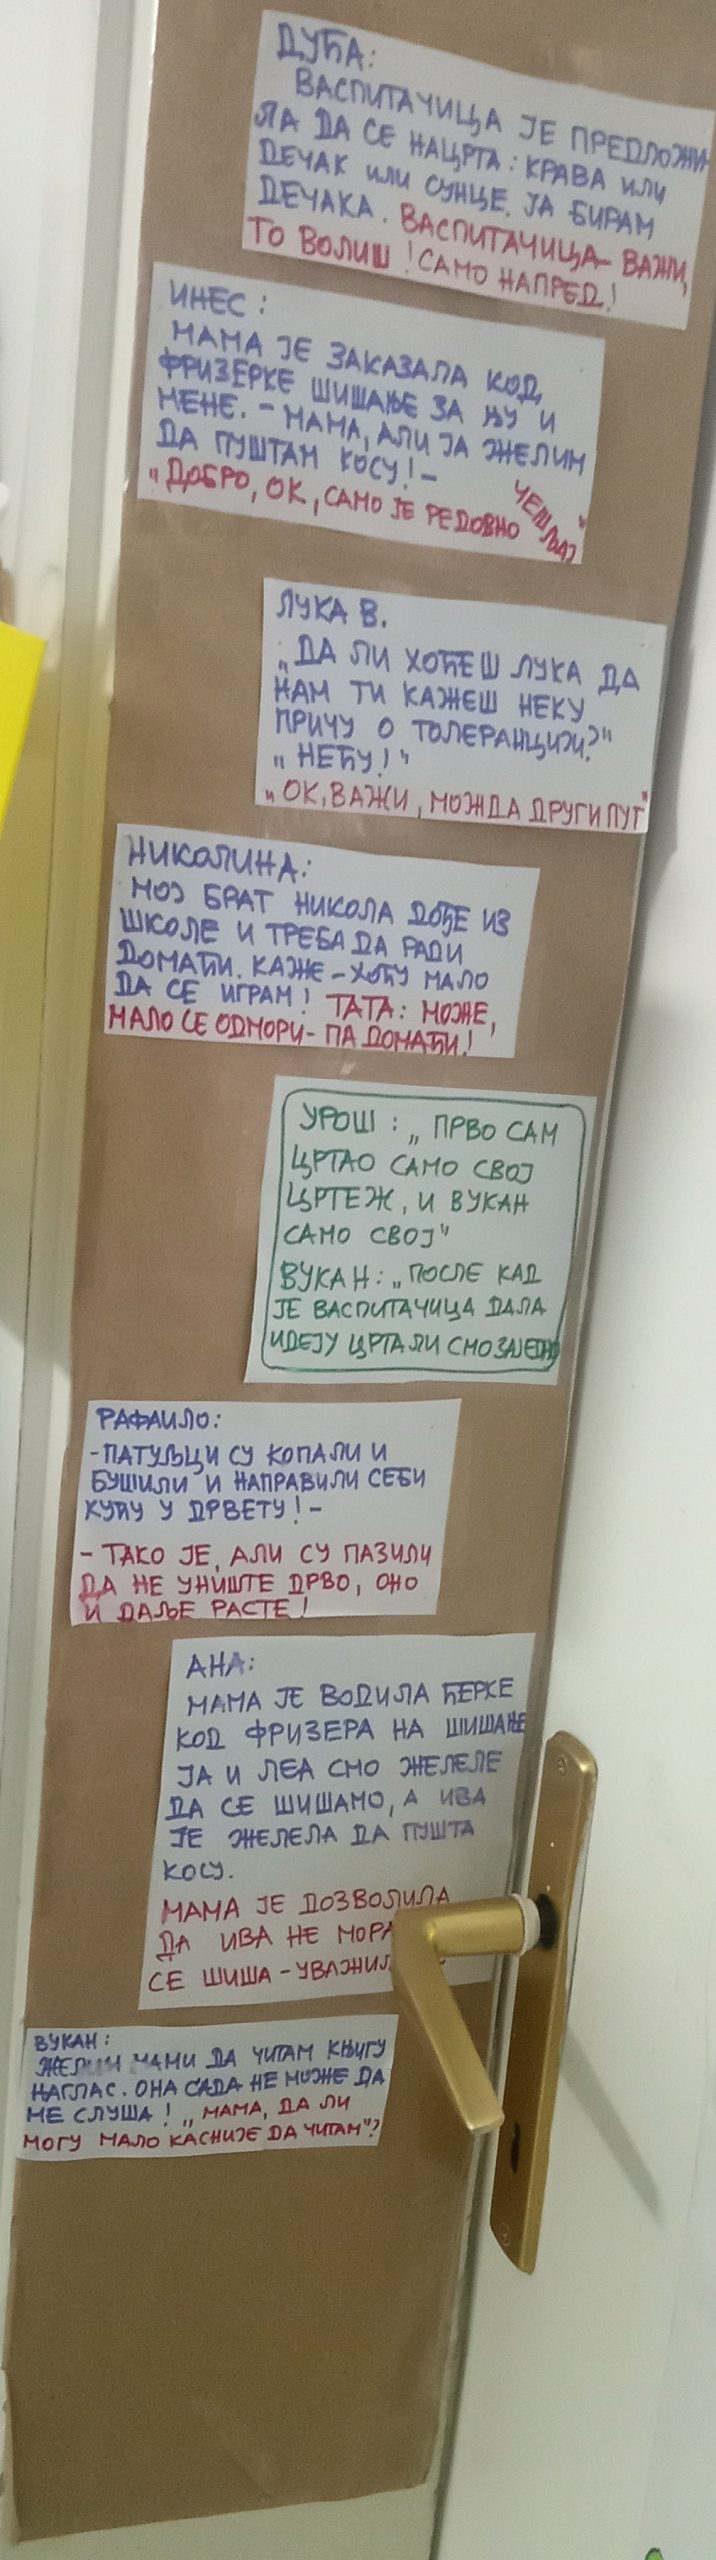 ДУЂА:
ВАСПИТАЧИЦА ЈЕ ПРЕДЛОЖИ-
ЛА ДА СЕ НАЦРТА: КРАВА ИЛИ
ДЕЧАК ИЛИ СУНЦЕ. ЈА БИРАМ
ДЕЧАКА. ВАСПИТАЧИЦА - ВАЖИ,
ТО ВОЛИШ! САМО НАПРЕД!
ИНЕС:
МАМА ЈЕ ЗАКАЗАЛА КОД
ФРИЗЕРКЕ ШИШАЊЕ ЗА ЊУ И
МЕНЕ. - МАМА, АЛИ ЈА ЖЕЛИМ
ДА ПУШТАМ КОСУ! -
"ДОБРО, ОК, САМО ЈЕ РЕДОВНО ЧЕШЉАЈ"
ЛУКА В.
„ДА ЛИ ХОЋЕШ ЛУКА ДА
НАМ ТИ КАЖЕШ НЕКУ
ПРИЧУ О ТОЛЕРАНЦИЈИ?"
„НЕЋУ!"
„ОК, ВАЖИ, МОЖДА ДРУГИ ПУТ"
НИКОЛИНА:
МОЈ БРАТ НИКОЛА ДОЂЕ ИЗ
ШКОЛЕ И ТРЕБА ДА РАДИ
ДОМАЋИ. КАЖЕ - ХОЋУ МАЛО
ДА СЕ ИГРАМ! ТАТА: МОЖЕ,
МАЛО СЕ ОДМОРИ - ПА ДОМАЋИ!
УРОШ: „ПРВО САМ
ЦРТАО САМО СВОЈ
ЦРТЕЖ, И ВУКАН
САМО СВОЈ"
ВУКАН: „ПОСЛЕ КАД
ЈЕ ВАСПИТАЧИЦА ДАЛА
ИДЕЈУ ЦРТАЛИ СМО ЗАЈЕДНО
РАФАИЛО:
- ПАТУЉЦИ СУ КОПАЛИ И
БУШИЛИ И НАПРАВИЛИ СЕБИ
КУЋУ У ДРВЕТУ! -
- ТАКО ЈЕ, АЛИ СУ ПАЗИЛИ
ДА НЕ УНИШТЕ ДРВО, ОНО
И ДАЉЕ РАСТЕ!
АНА:
МАМА ЈЕ ВОДИЛА ЋЕРКЕ
КОД ФРИЗЕРА НА ШИШАЊЕ
ЈА И ЛЕА СМО ЖЕЛЕЛЕ
ДА СЕ ШИШАМО, А ИВА
ЈЕ ЖЕЛЕЛА ДА ПУШТА
КОСУ.
МАМА ЈЕ ДОЗВОЛИЛА
ДА ИВА НЕ МОРА
СЕ ШИША -
ВУКАН:
ЖЕЛИМ МАМИ ДА ЧИТАМ КЊИГУ
НАГЛАС. ОНА САДА НЕ МОЖЕ ДА
МЕ СЛУША! „МАМА, ДА ЛИ
МОГУ МАЛО КАСНИЈЕ ДА ЧИТАМ"?